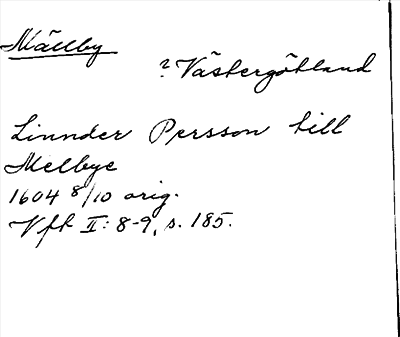 Mällby
? Västergötland
Linnder Persson till
Melbye
1604 8/10 orig.
Vfk II: 8-9, s. 185.